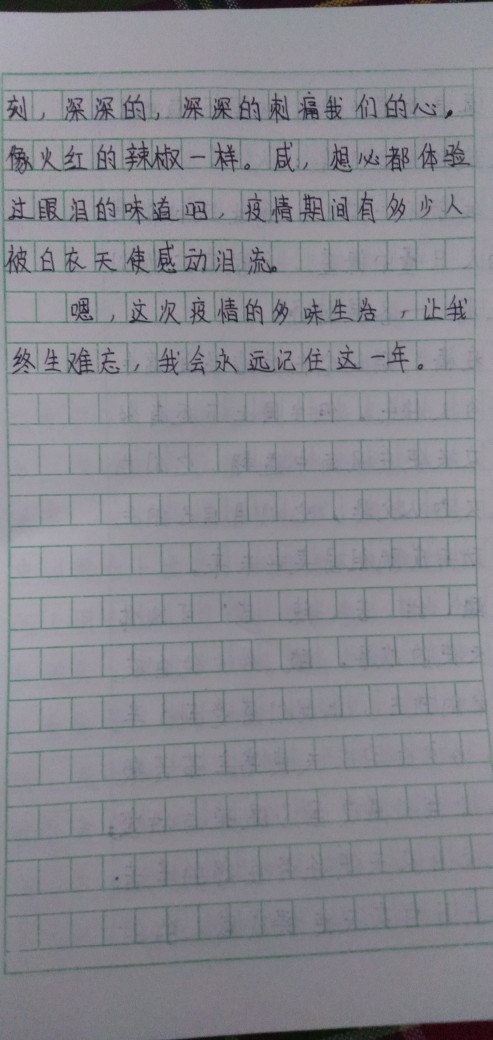 刻，深深的，深深的刺痛我们的心。
像火红的辣椒一样。咸，想必都体验
过眼泪的味道吧，疫情期间有多少人
被白衣天使感动泪流。
嗯，这次疫情的多味生活，让我
终生难忘，我会永远记住这一年。